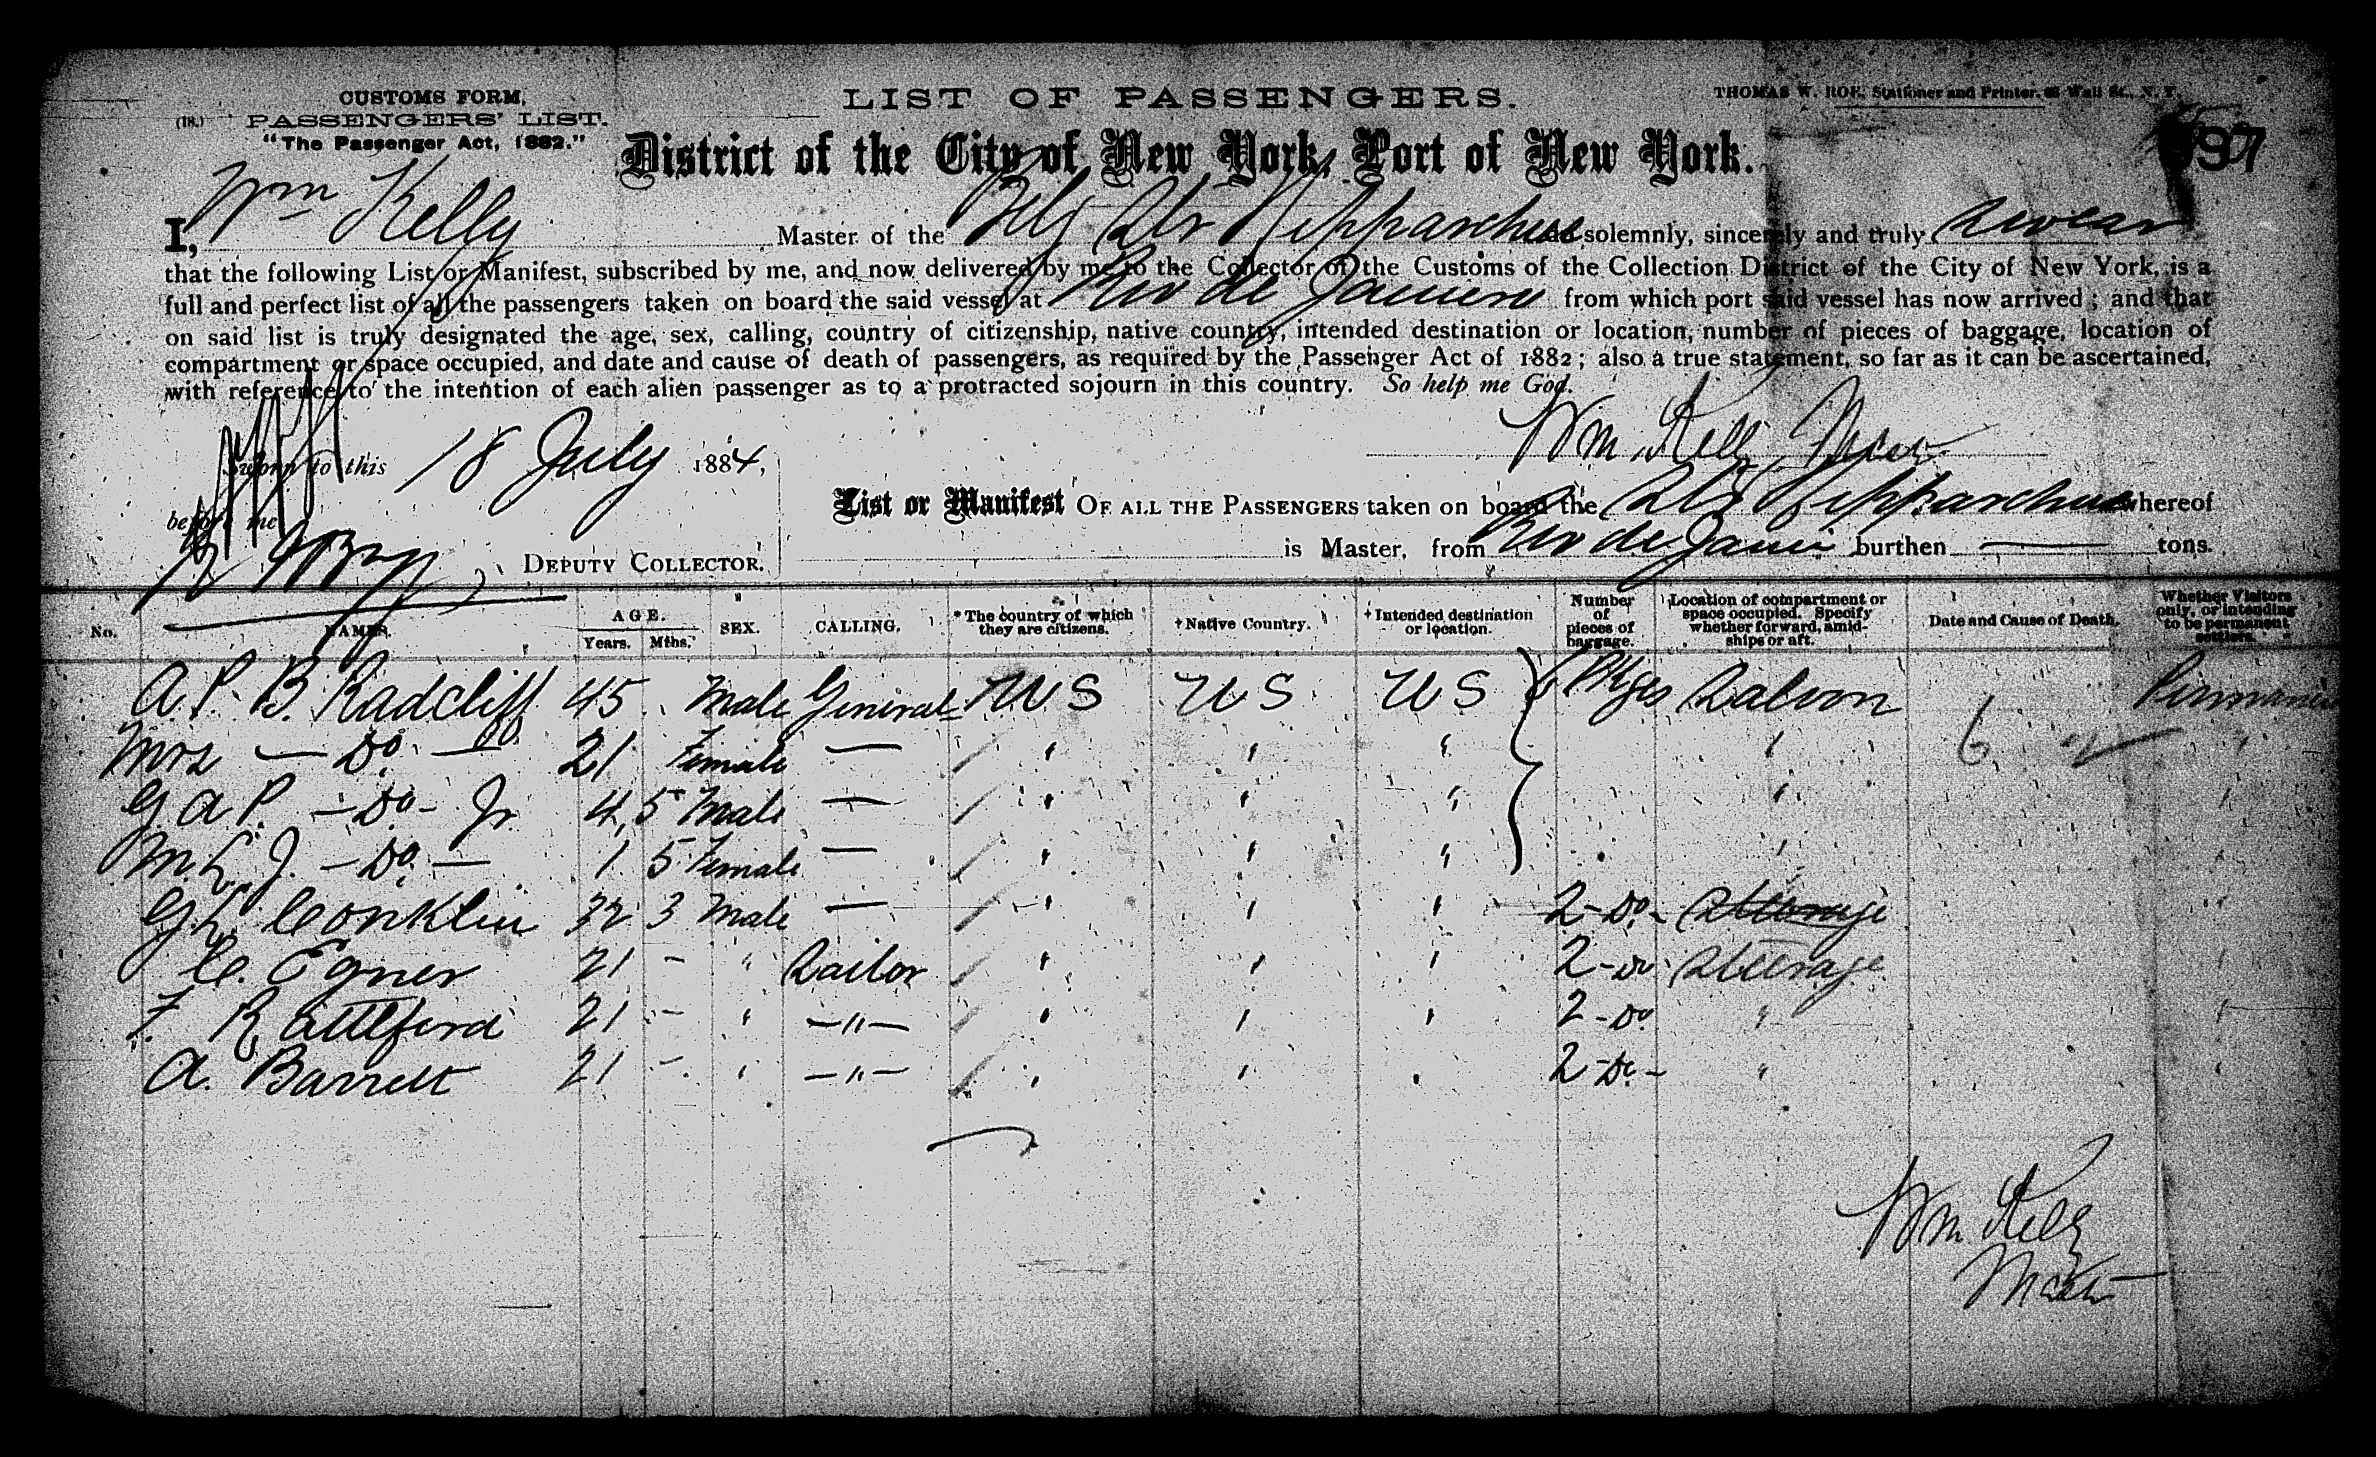 CUSTOMS FORM,
(18.) PASSENGERS' LIST.
"The Passenger Act, 1882."
LIST OF PASSENGERS.
THOMAS W. ROE, Stationer and Printer, Wall St., N. Y.
District of the City of New York, Port of New York.
97
I, Wm Kelly Master of the Belg Str Hipparchus do solemnly, sincerely and truly swear
that the following List or Manifest, subscribed by me, and now delivered by me to the Collector of the Customs of the Collection District of the City of New York, is a
full and perfect list of all the passengers taken on board the said vessel at Rio de Janeiro from which port said vessel has now arrived; and that
on said list is truly designated the age, sex, calling, country of citizenship, native country, intended destination or location, number of pieces of baggage, location of
compartment or space occupied, and date and cause of death of passengers, as required by the Passenger Act of 1882; also a true statement, so far as it can be ascertained,
with reference to the intention of each alien passenger as to a protracted sojourn in this country. So help me God.
Wm. Kelly Master
Sworn to this 18 July 1884,
before me
DEPUTY COLLECTOR.
List or Manifest OF ALL THE PASSENGERS taken on board the Str Hipparchus whereof
is Master, from Rio de Janeiro burthen — tons.
No. NAMES. AGE. Years. Mths. SEX. CALLING. * The country of which they are citizens. † Native Country. † Intended destination or location. Number of pieces of baggage. Location of compartment or space occupied. Specify whether forward, amidships or aft. Date and Cause of Death. Whether Visitors only, or intending to be permanent settlers.
A. P. B. Radcliff 45 Male General US US US 6 Pkges Saloon Permanent
Mrs — Do. — 21 Female — " " " " 6 "
G A P. — Do — Jr. 4 5 Male — " " " " "
M L. J. — Do. — 1 5 Female — " " " "
G. L. Conklin 32 3 Male — " " " 2 - Do - Steerage
C. Egner 21 - " Sailor " " " 2 - Do Steerage "
F. Rattlford 21 - " — " — " " " 2 - Do " "
A. Barrett 21 - " — " — " " " 2 Do - " "
Wm. Kelly
Master